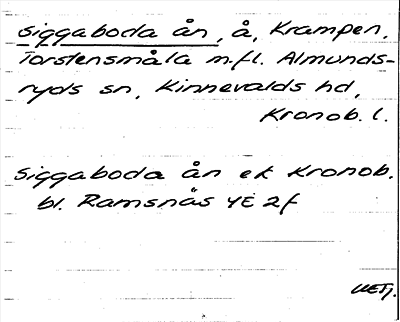 Siggaboda ån, å, Krampen,
Torstensmåla m.fl. Almunds-
ryds sn, Kinnevalds hd,
Kronob. l.
Siggaboda ån ek Kronob.
bl. Ramsnäs 4E 2f